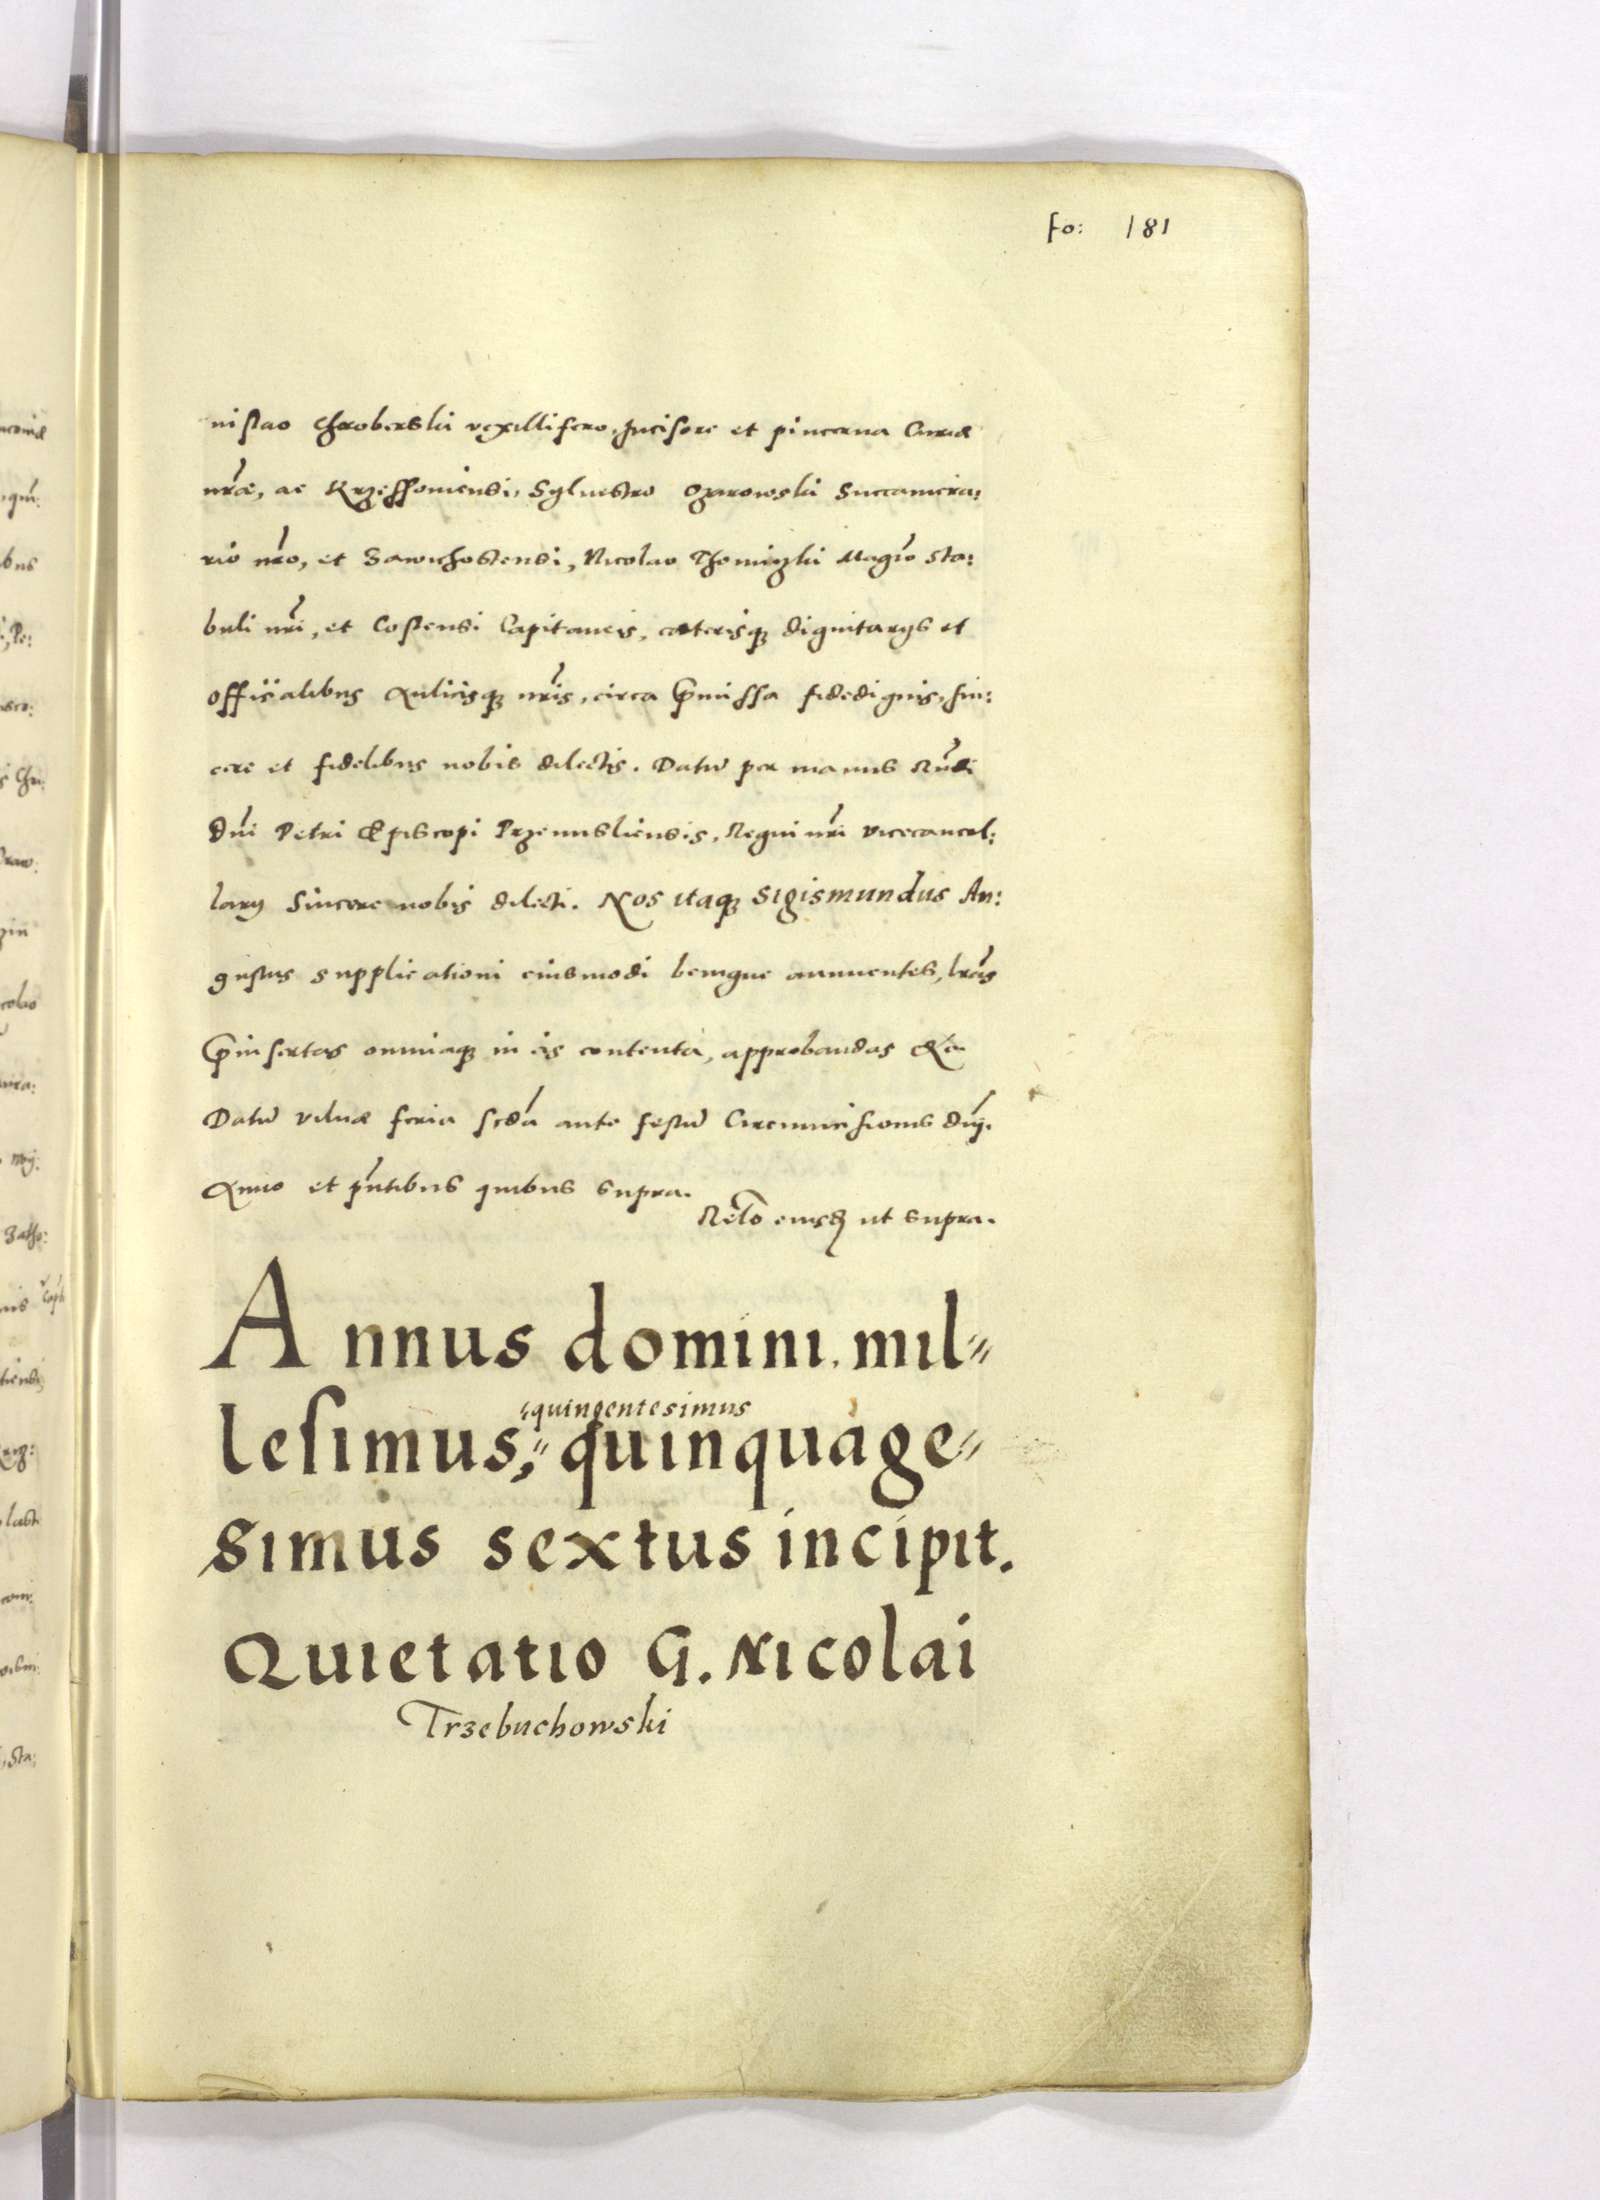 fo: 181
nislao Chroberski vexillifero, Incisore et pincerna Curiæ
nrã, ac Krzessoviensi, Sylvestro Ozarowski Succamera:
rio nro, et Zawichostensi, Nicolao Thomiczki Magro Sta:
buli nri, et Costensi Capitaneis, cæterisq; dignitarijs et
officialibus Aulicisq; nris, circa Pmissa fidedignis, sin:
cere et fidelibus nobis dilectis. Datū per manus Rndi
Dni Petri Episcopi Præmisliensis, Regni nri vicecancel:
larij Sincere nobis dilecti. Nos itaq; Sigismundus Au:
gustus supplicationi eiusmodi benigne annuentes, lras
Pinsertas omniaq; in eis contenta, approbandas &c
Datū vilnæ feria scda ante festū Circumcisionis Dni.
Anno et pntibus quibus supra.
Relo eiusd ut supra.
Annus domini. mil=
lesimus, quingentesimus quinquage=
simus sextus incipit.
Quietatio G. Nicolai
Trzebuchowski